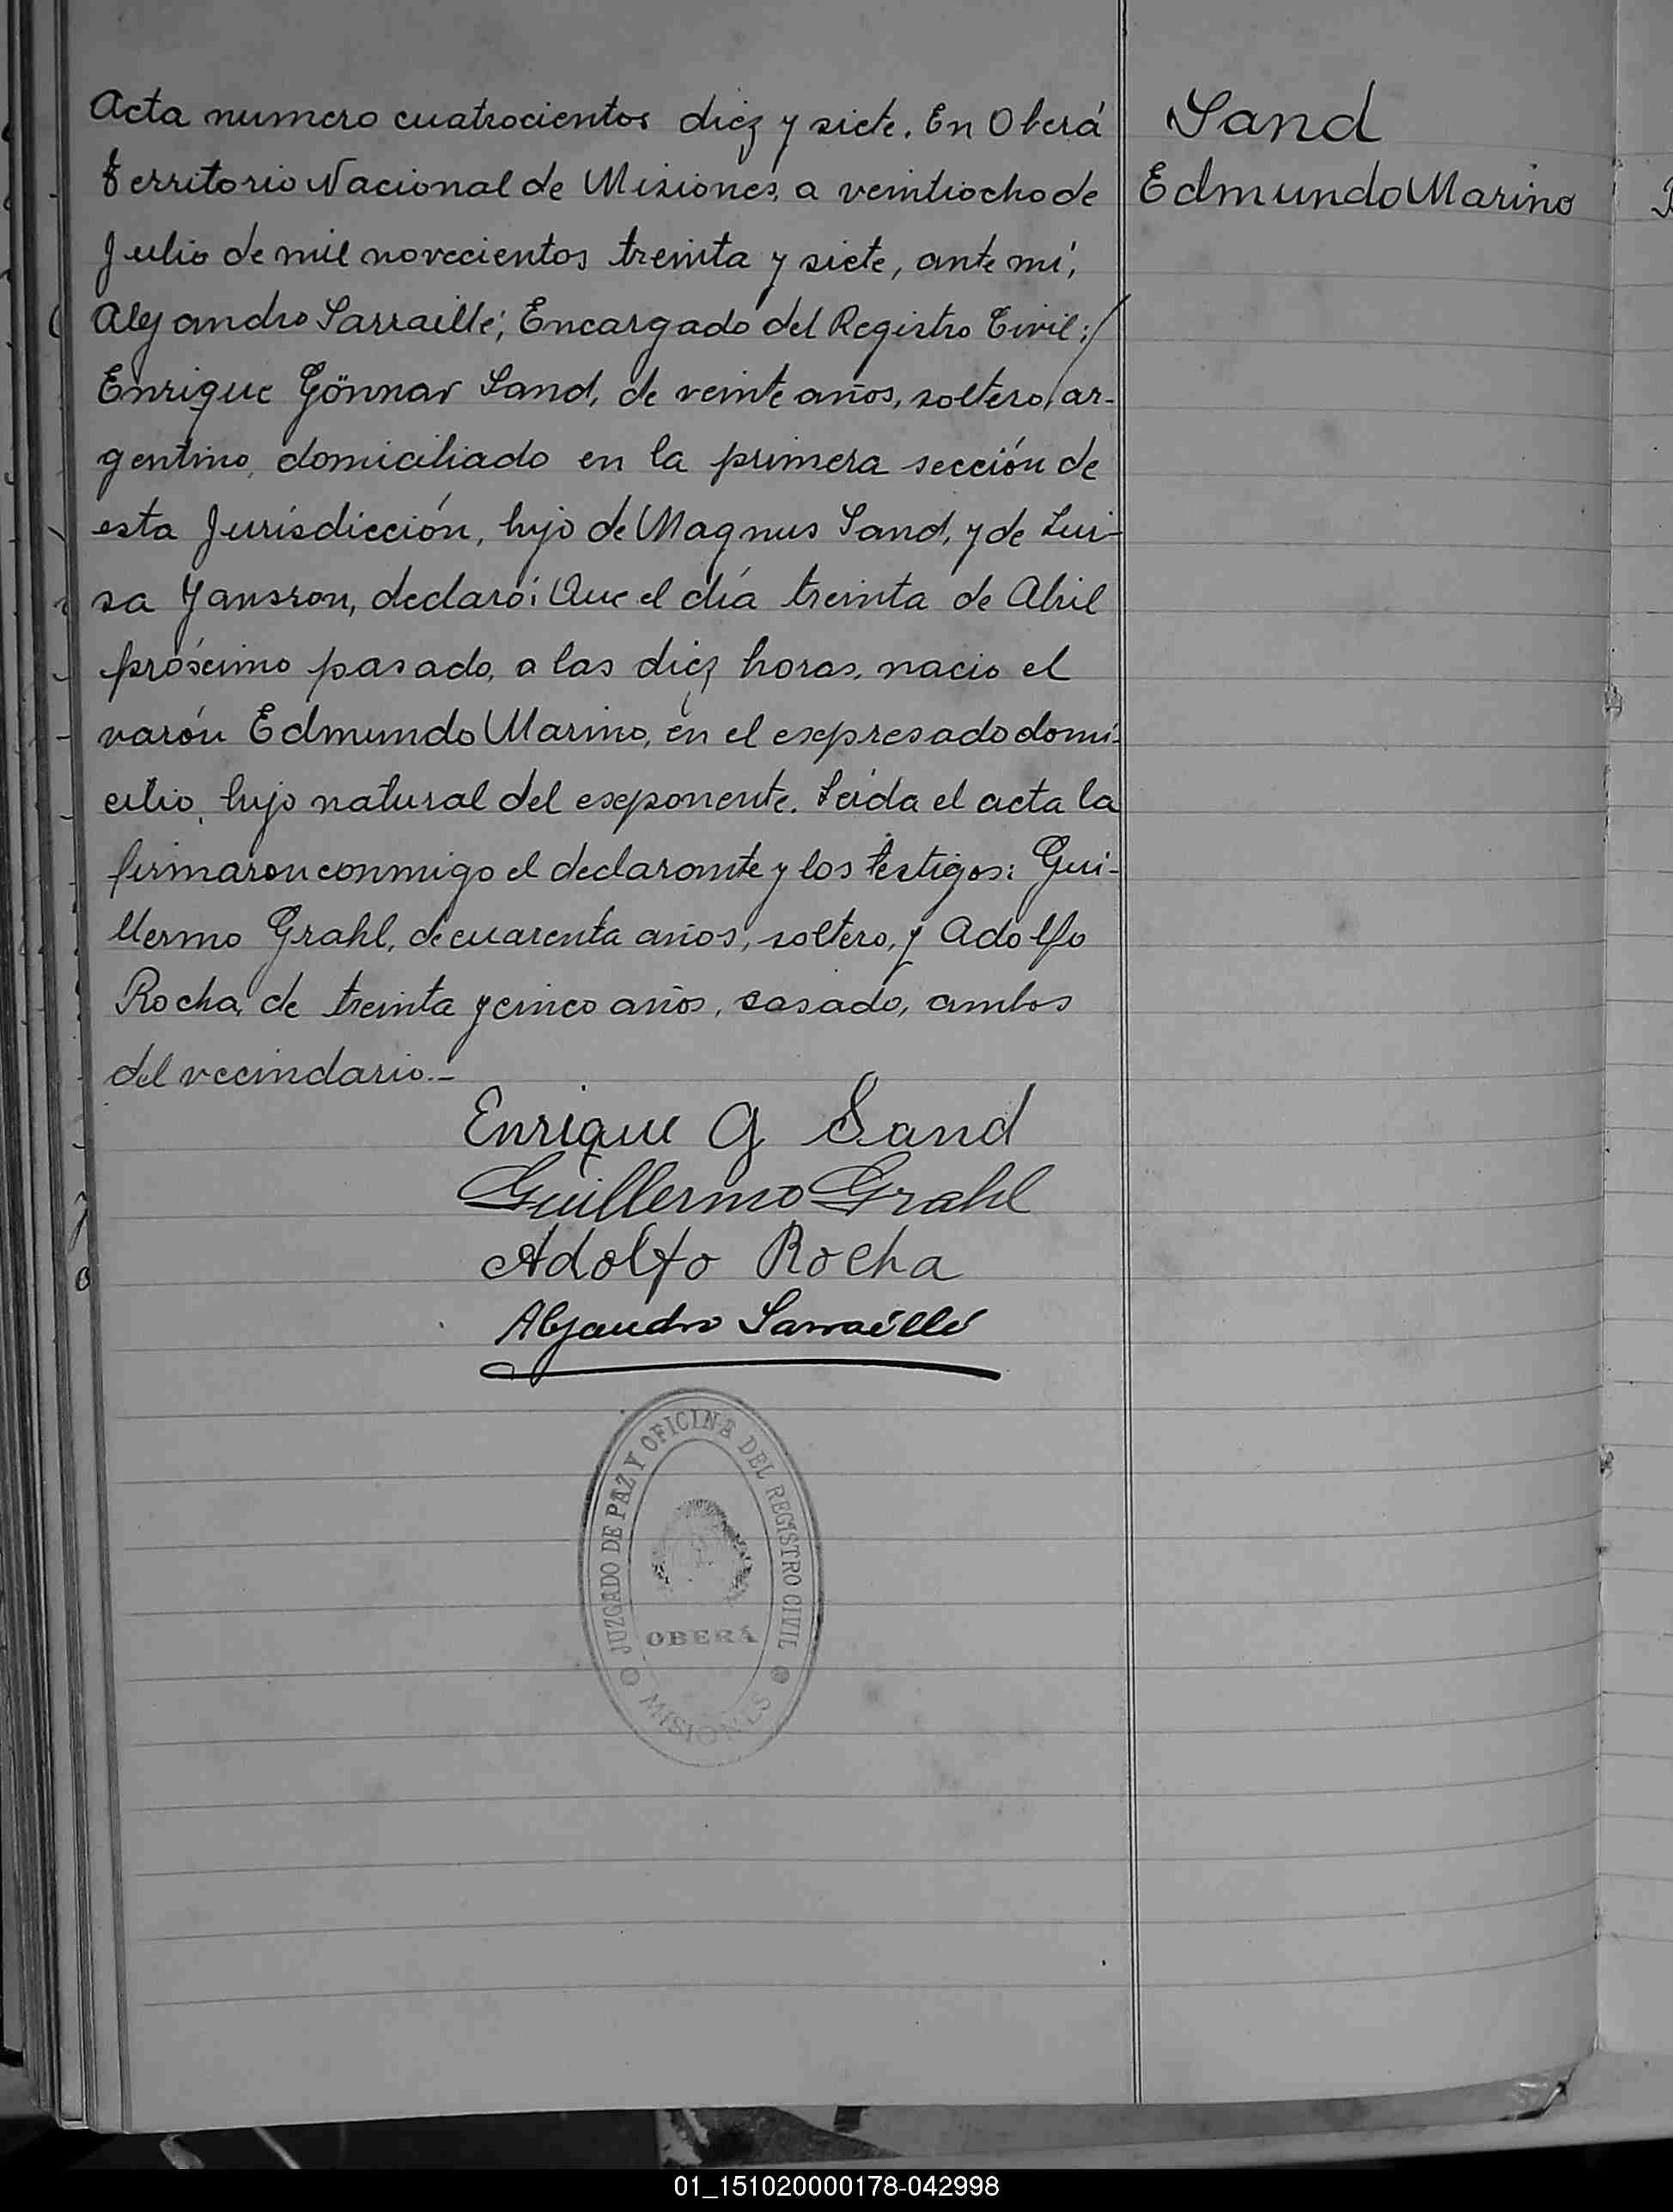 Acta numero cuatrocientos diez y siete. En Oberá
territorio Nacional de Misiones, a veintiocho de
Julio de mil novecientos treinta y siete, ante mí,
Alejandro Sarraillé; Encargado del Registro Civil:/
Enrique Gönnar Sand, de veinte años, soltero, ar-
gentino, domiciliado en la primera sección de
esta Jurisdicción, hijo de Magnus Sand, y de Lui-
sa Yansson, declaró: Que el día treinta de Abril
próscimo pasado, a las diez horas, nacio el
varón Edmundo Marino, en el escpresado domi-
cilio, hijo natural del escponente. Leída el acta la
firmaron conmigo el declarante y los testigos: Gui-
llermo Grahl, de cuarenta años, soltero, y Adolfo
Rocha, de treinta y cinco años, casado, ambos
del vecindario.-
Enrique G Sand
Guillermo Grahl
Adolfo Rocha
Alejandro Sarraillé
Sand
Edmundo Marino
JUZGADO DE PAZ Y OFICINA DEL REGISTRO CIVIL
OBERÁ
MISIONES
01_151020000178-042998